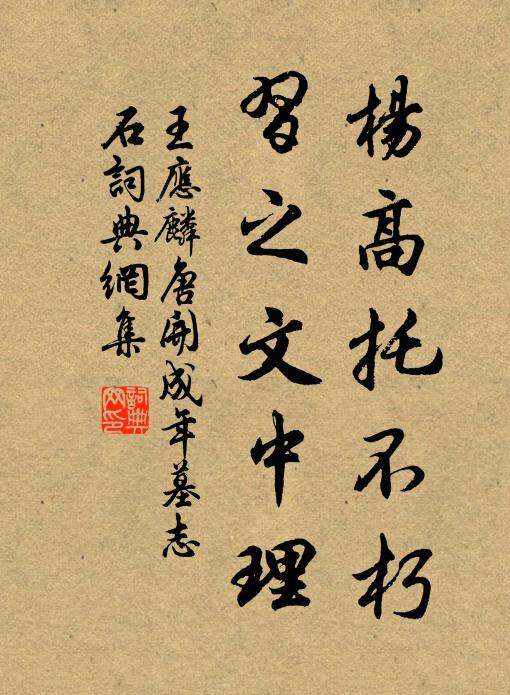 楊高托不朽
習之文中理
王應麟唐開成年墓志
石詞典網集
詞典網印